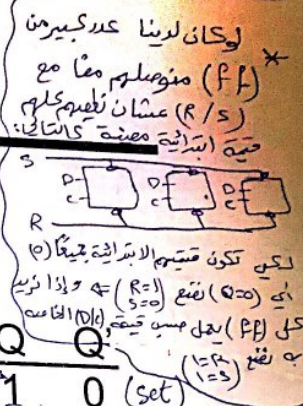 لوكان لدينا عدد كبير من
* (ff) منوصلهم معًا مع
(R/S) عشان نطيهم كلهم
قيمة ابتدائية معينة كالتالي:
S
D D D
C C C
R
لكي تكون قيمتهم الابتدائية جميعًا (0)
اي (Q=0) نضع (R=1 S=0) و إذا نريد
كل (ff) يعمل حسب قيمة (D/C) الخاصة
به نضع (1=R 1=S)
Q Q
1 0 (set)